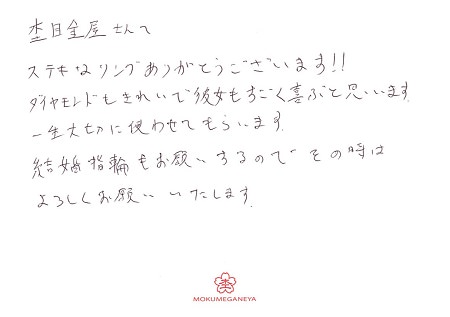 杢目金屋さんへ
ステキなリングありがとうございます!!
ダイヤモンドもきれいで彼女もすごく喜ぶと思います
一生大切に使わせてもらいます.
結婚指輪もお願いするのでその時は
よろしくお願いいたします.
MOKUMEGANEYA